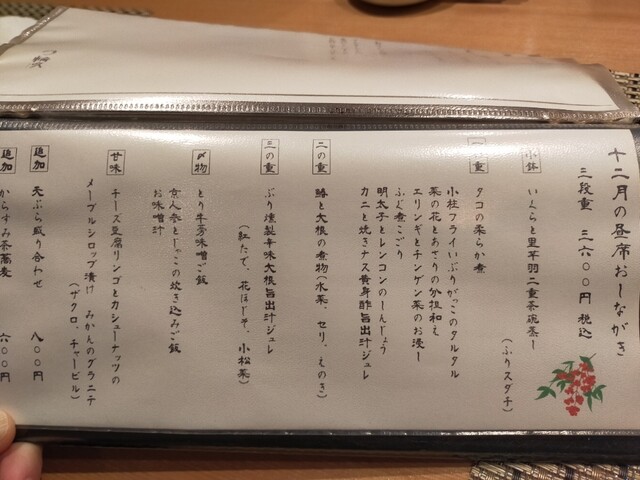 十二月の昼席おしながき
三段重 三六〇〇円 税込
小鉢
いくらと里芋羽二重茶碗蒸し
(ふりスタチ)
一の重
タコの柔らか煮
小柱フライいぶりがっこのタルタル
菜の花とあさりの分担和え
エリンギとチンゲン菜のお浸し
ふぐ煮こごり
明太子とレンコンのしんじょう
カニと焼きナス黄身酢旨出汁ジュレ
二の重
鰆と大根の煮物(水菜、セリ、えのき)
三の重
ぶり燻製辛味大根旨出汁ジュレ
(紅たで、花ほじそ、小松菜)
〆物
とり牛蒡味噌ご飯
京人参とじゃこの炊き込みご飯
お味噌汁
甘味
チーズ豆腐リンゴとカシューナッツの
メープルシロップ漬け みかんのグラニテ
(ザクロ、チャービル)
追加
天ぷら盛り合わせ 八〇〇円
追加
からすみ茶蕎麦 六〇〇円